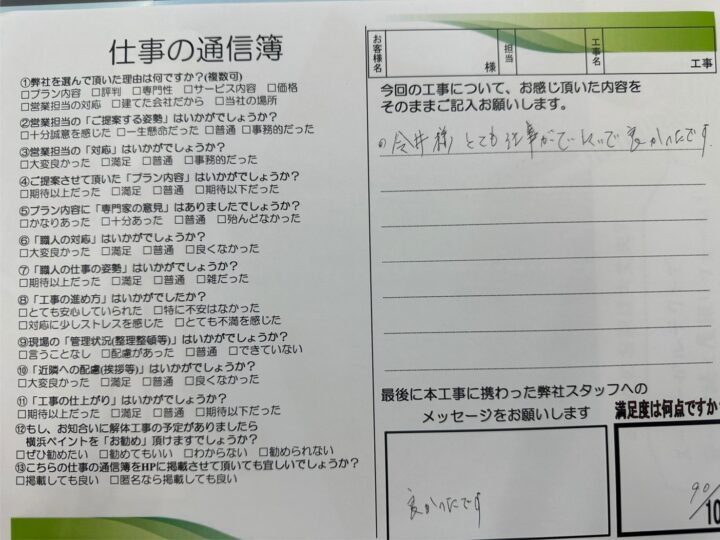 仕事の通信簿
①弊社を選んで頂いた理由は何ですか?(複数可)
□プラン内容 □評判 □専門性 □サービス内容 □価格
□営業担当の対応 □建てた会社だから □当社の場所
②営業担当の「ご提案する姿勢」はいかがでしょうか?
□十分誠意を感じた □一生懸命だった □普通 □事務的だった
③営業担当の「対応」はいかがでしょうか?
□大変良かった □満足 □普通 □事務的だった
④ご提案させて頂いた「プラン内容」はいかがでしょうか?
□期待以上だった □満足 □普通 □期待以下だった
⑤プラン内容に「専門家の意見」はありましたでしょうか?
□かなりあった □十分あった □普通 □殆んどなかった
⑥「職人の対応」はいかがでしょうか?
□大変良かった □満足 □普通 □良くなかった
⑦「職人の仕事の姿勢」はいかがでしょうか?
□期待以上だった □満足 □普通 □雑だった
⑧「工事の進め方」はいかがでしたか?
□とても安心していられた □特に不安はなかった
□対応に少しストレスを感じた □とても不満を感じた
⑨現場の「管理状況(整理整頓等)」はいかがでしょうか?
□言うことなし □配慮があった □普通 □できていない
⑩「近隣への配慮(挨拶等)」はいかがでしょうか?
□大変良かった □満足 □普通 □良くなかった
⑪「工事の仕上がり」はいかがでしょうか?
□期待以上だった □満足 □普通 □期待以下だった
⑫もし、お知合いに解体工事の予定がありましたら
横浜ペイントを「お勧め」頂けますでしょうか?
□ぜひ勧めたい □勧めてもいい □わからない □勧められない
⑬こちらの仕事の通信簿をHPに掲載させて頂いても宜しいでしょうか?
□掲載しても良い □匿名なら掲載しても良い
お客様名 様 担当 工事名 工事
今回の工事について、お感じ頂いた内容を
そのままご記入お願いします。
今井様 とても仕事がていねいで良かったです。
最後に本工事に携わった弊社スタッフへの
メッセージをお願いします
良かったです
満足度は何点ですか
90/10